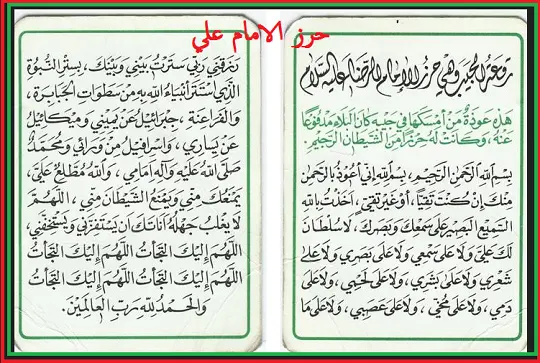 حرز الامام علي
رقعة الجيب وهي حرز الإمام الرضا عليه السلام
هذه عوذة من أمسكها في جيبه كان البلاء مدفوعًا
عنه ، وكانت له حرزًا من الشيطان الرجيم .
بسم الله الرحمن الرحيم ، بسم الله إني أعوذ بالرحمن
منك إن كنت تقيًا ، أو غير تقي ، أخذت بالله
السميع البصير على سمعك وبصرك ، لا سلطان
لك علي ولا على سمعي ولا على بصري ولا على
شعري ولا على بشري ، ولا على لحمي ، ولا على
دمي ، ولا على مخي ، ولا على عصبي ، ولا على ما
ورزقني ربي سترت بيني وبينك ، بستر النبوة
الذي استتر أنبياء الله به من سطوات الجبابرة ،
والفراعنة ، جبرائيل عن يميني وميكائيل
عن يساري ، واسرافيل من ورائي ومحمد
صلى الله عليه وآله أمامي ، والله مطلع علي ،
يمنعك مني ويمنع الشيطان مني ، اللهم
لا يغلب جهله أناتك أن يستفزني ويستخفني ،
اللهم إليك التجأت اللهم إليك التجأت
اللهم إليك التجأت اللهم إليك التجأت
والحمد لله رب العالمين .